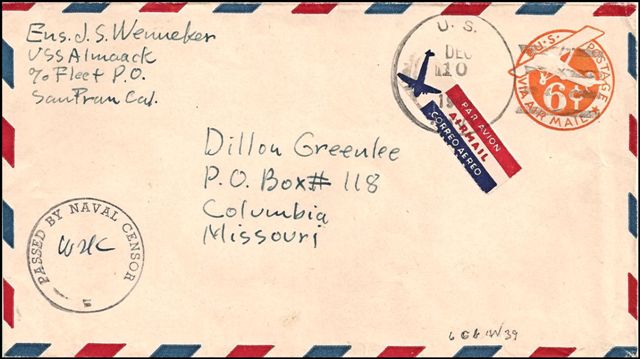 Ens. J. S. Wenneker
USS Almaack
% Fleet P.O.
San Fran Cal.
U. S.
DEC
10
U.S. POSTAGE
VIA AIR MAIL
6¢
PAR AVION
AIR MAIL
CORREO AEREO
Dillon Greenlee
P.O. Box # 118
Columbia
Missouri
PASSED BY NAVAL CENSOR